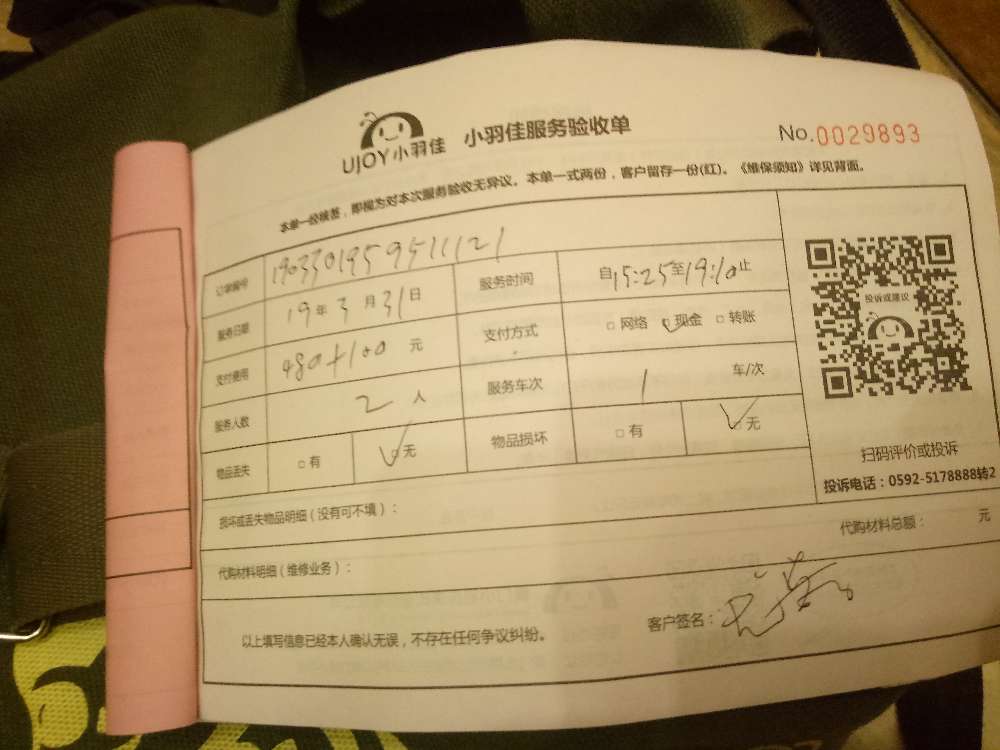 UJOY小羽佳 小羽佳服务验收单 No.0029893
本单一经核签，即视为对本次服务验收无异议。本单一式两份，客户留存一份(红)。《维保须知》详见背面。
订单编号 1903301959511121
服务日期 19年3月31日 服务时间 自15:25至19:10止
支付费用 480+100元 支付方式 □网络 ☑现金 □转账
服务人数 2人 服务车次 1 车/次
物品丢失 □有 ☑无 物品损坏 □有 ☑无
投诉或建议
扫码评价或投诉
投诉电话：0592-5178888转2
损坏或丢失物品明细（没有可不填）：
代购材料明细（维修业务）： 代购材料总额： 元
以上填写信息已经本人确认无误，不存在任何争议纠纷。 客户签名：